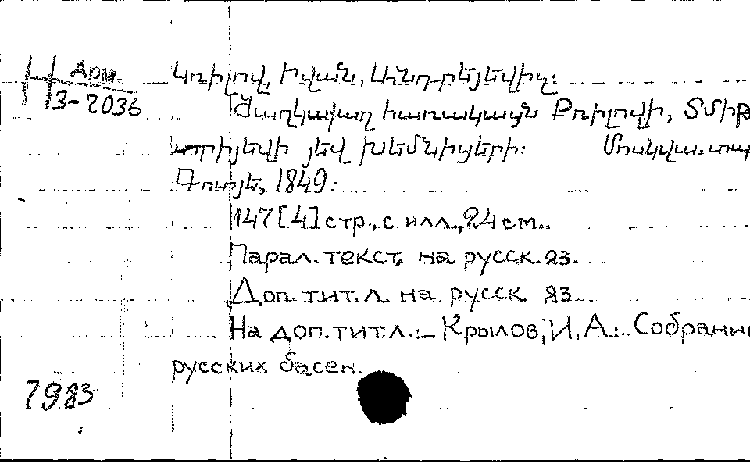 Н Арм.
3-2036
Կռիլով, Իվան, Անդրեյեվիչ:
Ծաղկաքաղ հառակայսն Քռիլովի, ՏՄԻՐ
յեվ խեմնիցերի: Մոսկվա. տպ
Գոտյե, 1849:
147[4] стр., с илл., 24 см.
Парал. текст. на русск. яз.
Доп. тит. л. на русск. яз.
На доп. тит. л.: — Крылов, И. А.: Собрание
русских басен.
7983